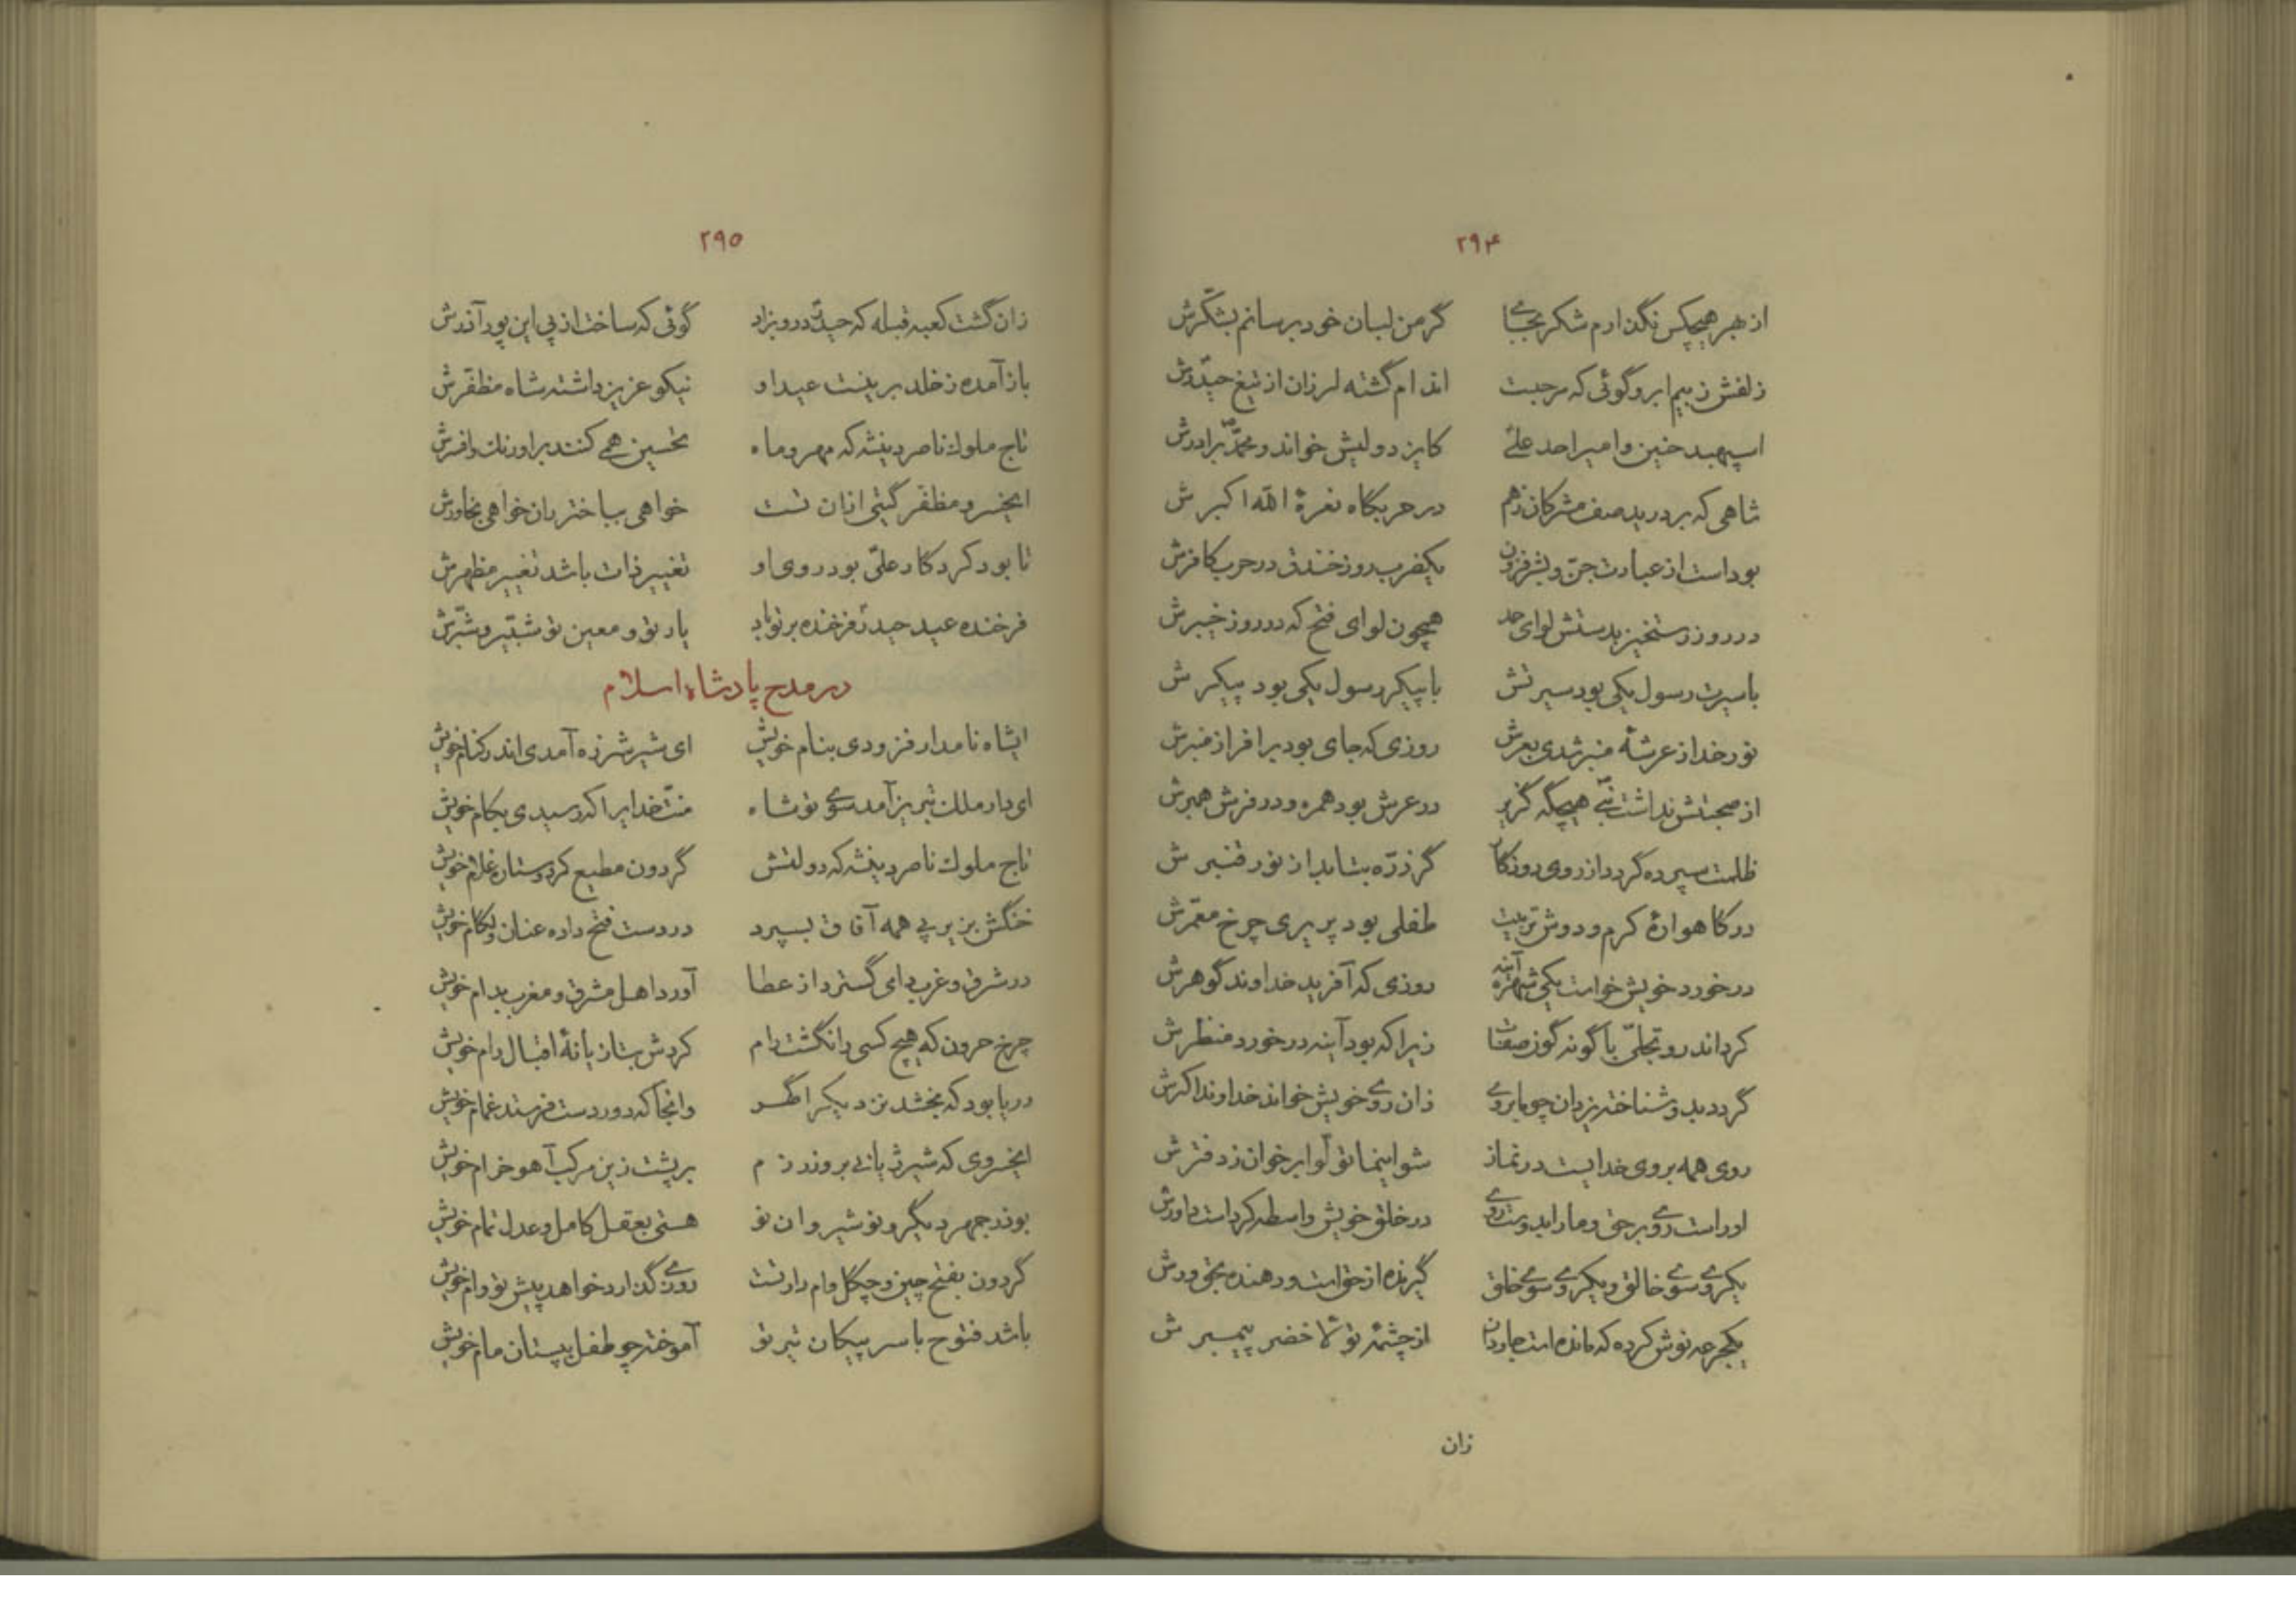 ۲۹۴
از هر هیچکس نگذارم شکر بجای گر من لبان خود برسانم بشکّرش
زلفش ز بیم ابرو گوئی که مرحبست اندام گشته لرزان از تیغ حیدرش
اسپهبد حنین و امیر احد علی کایزد ولیش خواند و محمّد برادرش
شاهی که بر درید صف مشرکان زهم در حربگاه نعرهٔ الله اکبرش
بوداست از عبادت جنّ و بشر فزون یکضرب روز خندق در حرب کافرش
در روز رستخیز بدستش لوای حمد همچون لوای فتح که در روز خیبرش
با سیرت رسول یکی بود سیرتش با پیکر رسول یکی بود پیکرش
نور خدا ز عرشهٔ منبر شدی بعرش روزی که جای بود بر افراز منبرش
از صحبتش نداشت نبی هیچگه گزیر در عرش بود همره و در فرش همبرش
ظلمت سپرده گردد از روی روزگار گر ذرّه بتابد از نور قنبرش
در گاهوارهٔ کرم و دوش تربیت طفلی بود پریری چرخ معمّرش
درخورد خویش خواست یکی شهره آینه روزی که آفرید خداوند گوهرش
کرد اندرو تجلّی با گونه گون صفات زیرا که بود آینه درخورد منظرش
گر دید و شناخته یزدان چو ما بروی زان روی خویش خواند خداوند اکبرش
روی همه بروی خدایست در نماز شو اینما تولّوا بر خوان ز دفترش
او راست روی بر حق و ما را بدوست روی در خلق خویش واسطه کرداست داورش
یکروی سوی خالق و یکروی سوی خلق گیرنده از حق است و دهنده بحق ورش
یکجرعه نوش کرده که مانده است جاودان از چشمهٔ تولا خضر پیمبرش
زان
۲۹۵
زان گشت کعبه قبله که حیدر درو بزاد گوئی که ساخت از پی این پور آذرش
باز آمده ز خلد برینست عید او نیکو عزیز داشته شاه مظفّرش
تاج ملوک ناصر دینشه که مهر و ماه تحسین همی کنند بر اورنگ و افسرش
ایخسرو مظفّر گیتی ازان تست خواهی بباختر ران خواهی بخاورش
تا بود کردگار علّی بود روی او تغییر ذات باشد تغییر مظهرش
فرخنده عید حیدر فرخنده بر تو باد یار تو و معین تو شبّیر و شبّرش
در مدح پادشاه اسلام
ایشاه نامدار فزودی بنام خویش ای شیر شرزه آمدی اندر کنام خویش
ای دار ملک تبریز آمد سوی تو شاه منّت خدایرا که رسیدی بکام خویش
تاج ملوک ناصر دینشه که دولتش گردون مطیع کرد و ستاره غلام خویش
خنگش بزیر پی همه آفاق بسپرد در دست فتح داده عنان و لگام خویش
در شرق و غرب دای گسترد از عطا آورد اهل مشرق و مغرب بدام خویش
چرخ حرون که هیچ کسی را نگشت رام کردش بتازیانهٔ اقبال رام خویش
دریا بود که بخشد نزدیک را گهر وانجا که دور دست فرستد غمام خویش
ایخسروی که شیر ژیانی بروز رزم بر پشت زین مرکب آهو خرام خویش
بوذرجمهر دیگر و نوشیروان نو هستی بعقل کامل و عدل تمام خویش
گردون بفتح چین و چگل وام دار تست روزی گذارد خواهد پیش تو وام خویش
باشد فتوح با سر پیکان تیر تو آموخته چو طفل بپستان مام خویش